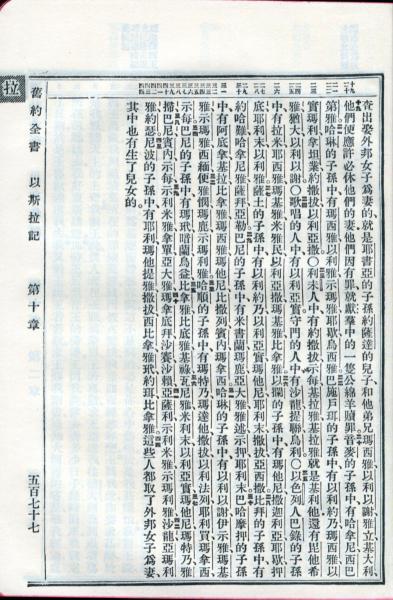 查出娶外邦女子爲妻的、就是耶書亞的子孫約薩達的兒子、和他弟兄瑪西雅、以利以謝、雅立、基大利、
他們便應許必休他們的妻他們因有罪就獻羣中的一隻公綿羊贖罪。音麥的子孫中、有哈拿尼、西巴
第雅。哈琳的子孫中、有瑪西雅、以利雅、示瑪雅、耶歇、烏西雅。巴施戶珥的子孫中、有以利約乃、瑪西雅、以
實瑪利、拿坦業、約撒拔、以利亞撒。○利未人中、有約撒拔、示每、基拉雅、基拉雅就是基利他、還有毘他希
雅、猶大、以利以謝。○歌唱的人中有以利亞實守門的人中、有沙龍、提聯、烏利。○以色列人巴錄的子孫
中、有拉米、耶西雅、瑪基雅、米雅民、以利亞撒、瑪基雅、比拿雅。以攔的子孫中、有瑪他尼、撒迦利亞、耶歇、押
底、耶利末、以利雅。薩土的子孫中、有以利約乃、以利亞實、瑪他尼、耶利末、撒拔、亞西撒。比拜的子孫中、有
約哈難、哈拿尼雅、薩拜、亞勒。巴尼的子孫中、有米書蘭、瑪鹿、亞大雅、雅述、示押、耶利末。巴哈摩押的子孫
中、有阿底拿、基拉、比拿雅、瑪西雅、瑪他尼、比撒列、賓內、瑪拿西。哈琳的子孫中、有以利以謝、伊示雅、瑪基
雅、示瑪雅、西緬、便雅憫、瑪鹿、示瑪利雅。哈順的子孫中、有瑪特乃、瑪達他、撒拔、以利法列、耶利買、瑪拿西、
示每。巴尼的子孫中、有瑪玳、暗蘭、烏益、比拿雅、比底雅、基祿、瓦尼雅、米利末、以利亞實、瑪他尼、瑪特乃、雅
掃、巴尼、賓內、示每、示利米雅、拿單、亞大雅、瑪拿底拜、沙賽、沙賴、亞薩利、示利米雅、示瑪利雅、沙龍、亞瑪利
雅、約瑟。尼波的子孫中、有耶利、瑪他提雅、撒拔、西比拿、雅玳、約珥、比拿雅。這些人都取了外邦女子爲妻、
其中也有生了兒女的。
舊約全書 以斯拉記 第十章 五百七十七
拉